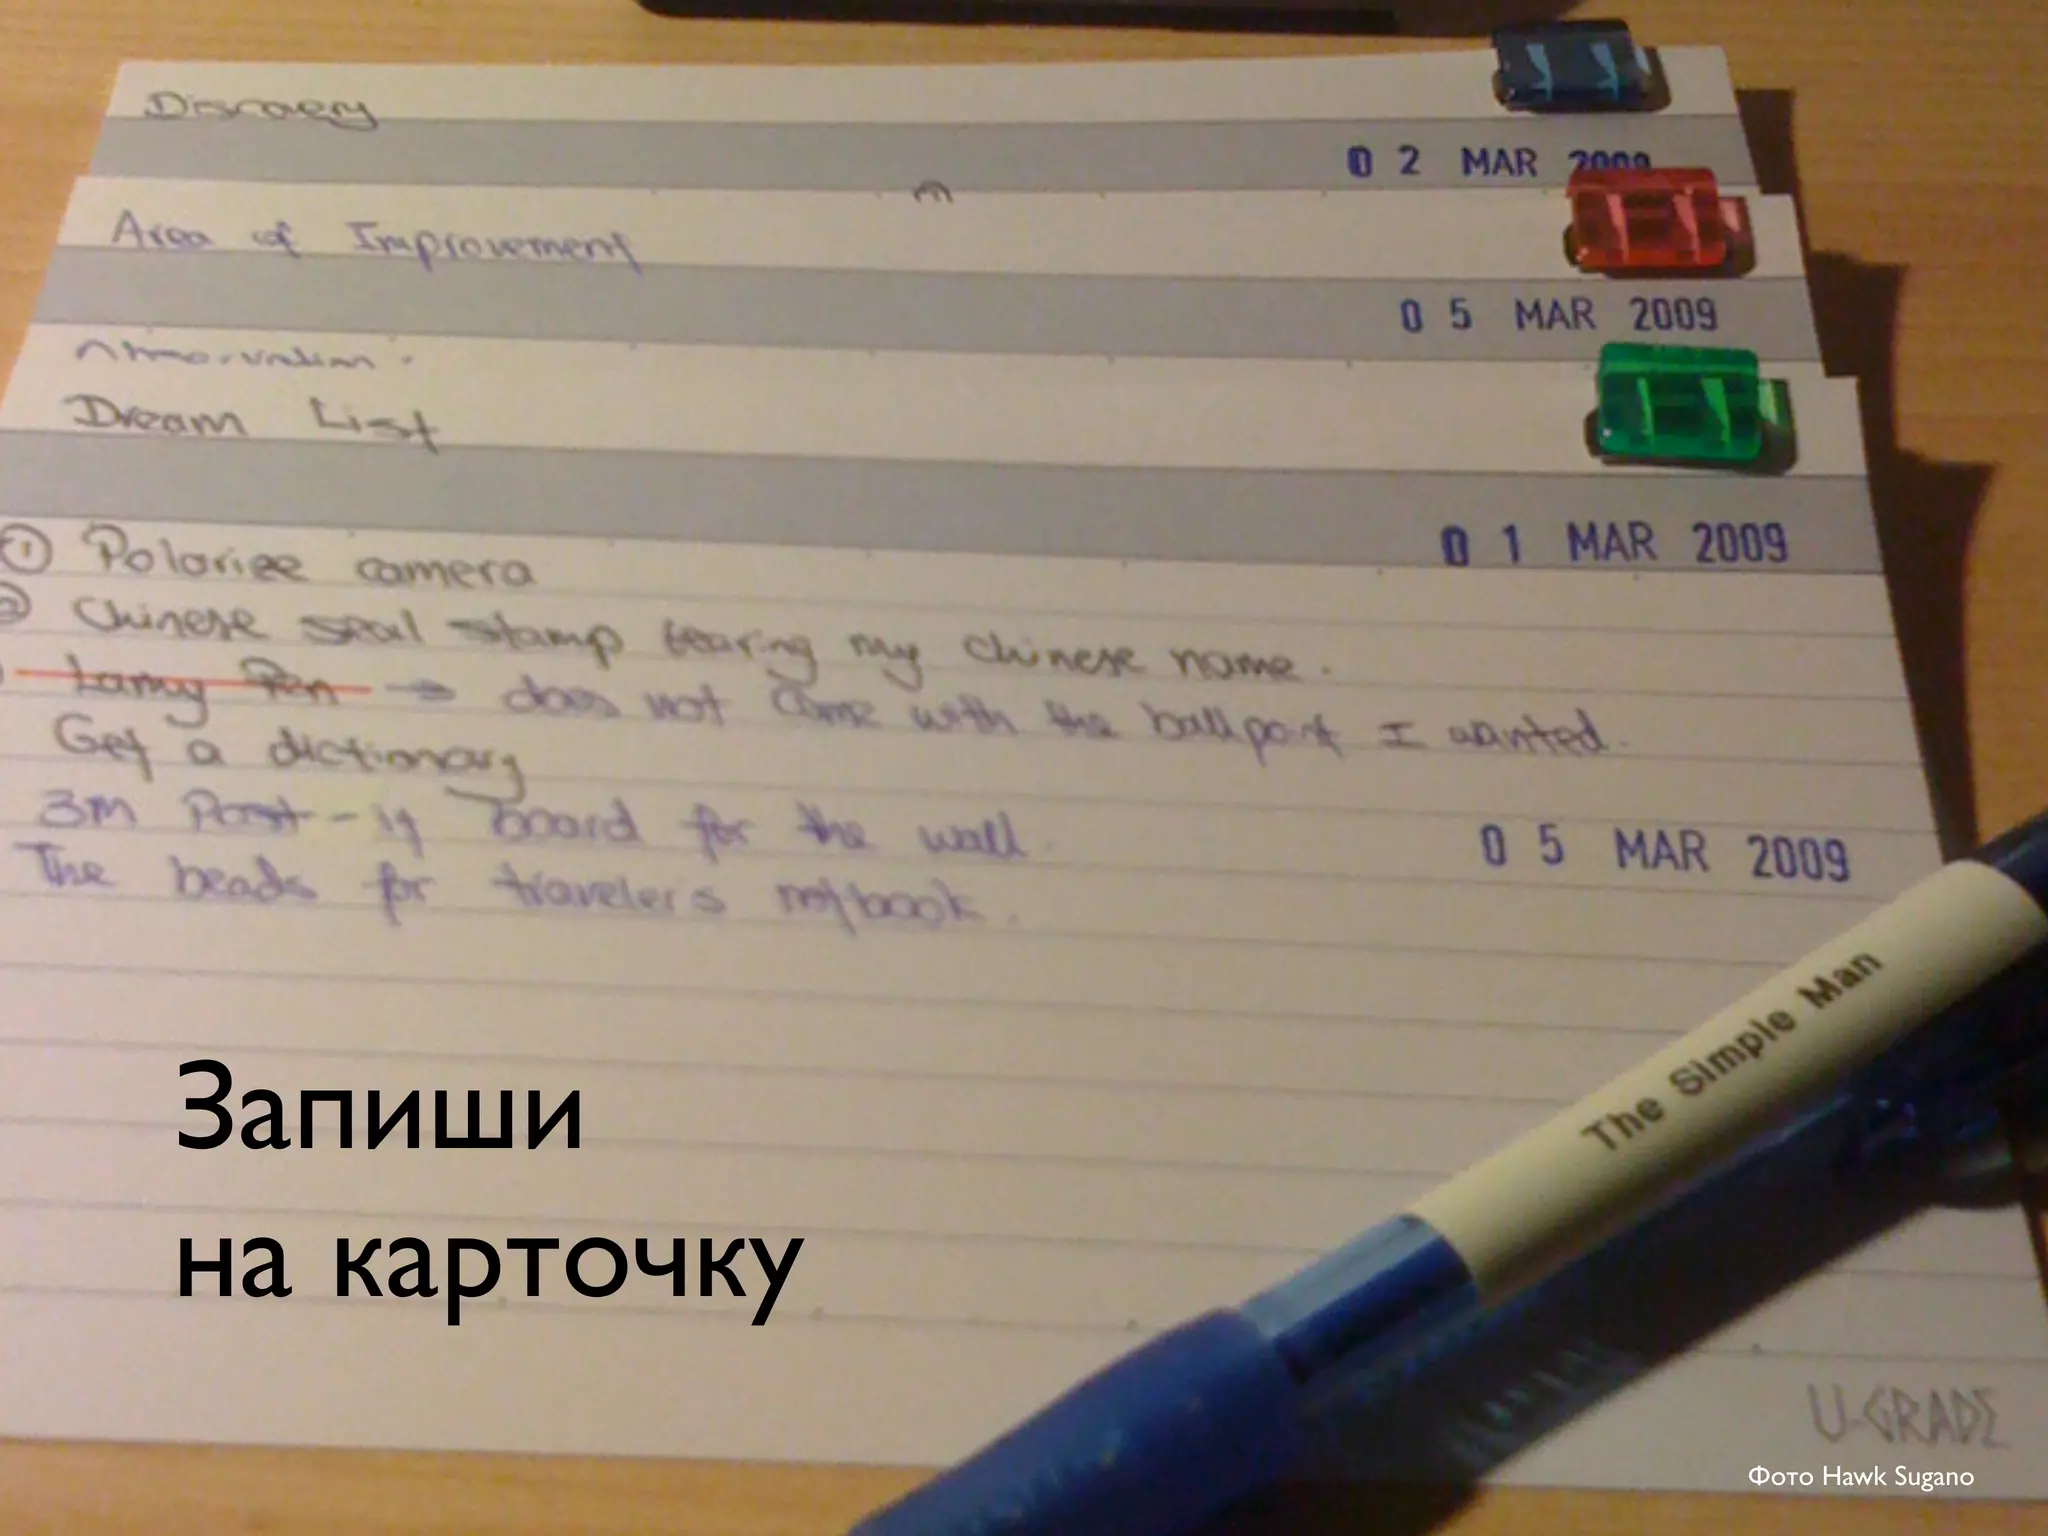 Discovery
02 MAR 2009
Area of Improvement
05 MAR 2009
Dream List
01 MAR 2009
① Polariee camera
② Chinese seal stamp bearing my chinese name.
Lamy Pen → does not come with the ballpoint I wanted.
Get a dictionary
3M Post-it board for the wall
05 MAR 2009
The beads for travelers notebook.
The Simple Man
Запиши
на карточку
U-GRADE
Фото Hawk Sugano